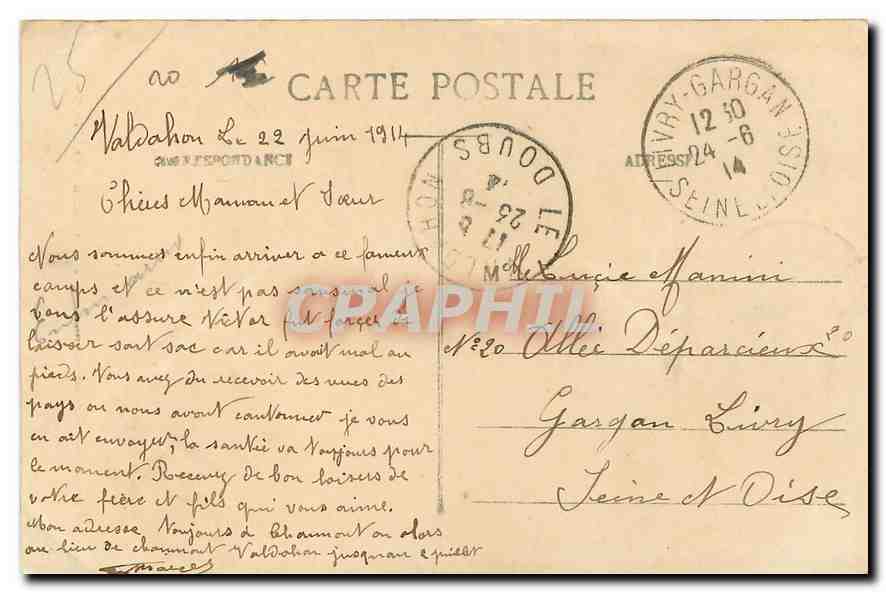 25
20
CARTE POSTALE
Valdahon Le 22 Juin 1914
CORRESPONDANCE
ADRESSE
LIVRY-GARGAN
12 30
24 -6
14
SEINE ET OISE
LE VALDAHON
DOUBS
Chères Maman et Sœur
Nous sommes enfin arriver a ce fameux
camps et ce n'est pas sansmal je
vous l'assure Victor fut forcer de
laisser sont sac car il avait mal au
pieds. Vous avez du recevoir des vues des
pays ou nous avont cantonner je vous
en ait envoyer, la santée va toujours pour
le moment. Recevez de bon baisers de
votre frère et fils qui vous aime.
Mon adresse toujours à Chaumont ou alors
au lieu de chaumont Valdahon jusquau 2 juillet
Marcel
Melle Lucie Manini
No 20 Allée Déparcieux 20
Gargan Livry
Seine et Oise
CPAPHIL